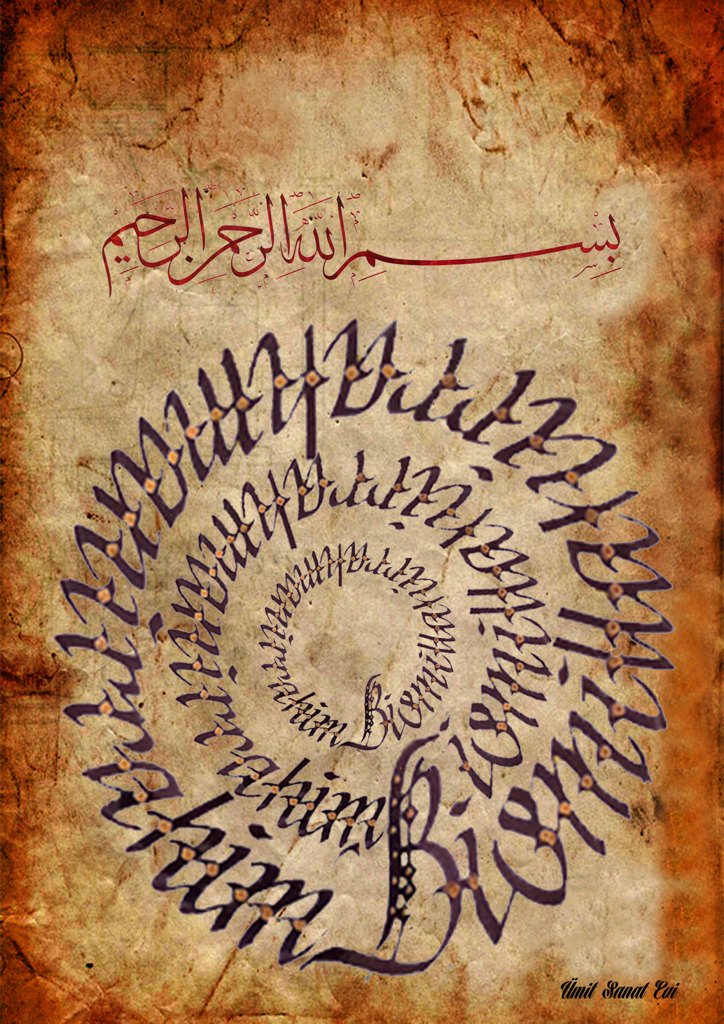 بِسْمِ اللَّهِ الرَّحْمَنِ الرَّحِيمِ
Bismillahirrahmanirrahim
Bismillahirrahmanirrahim
Bismillahirrahmanirrahim
Ümit Sanat Evi